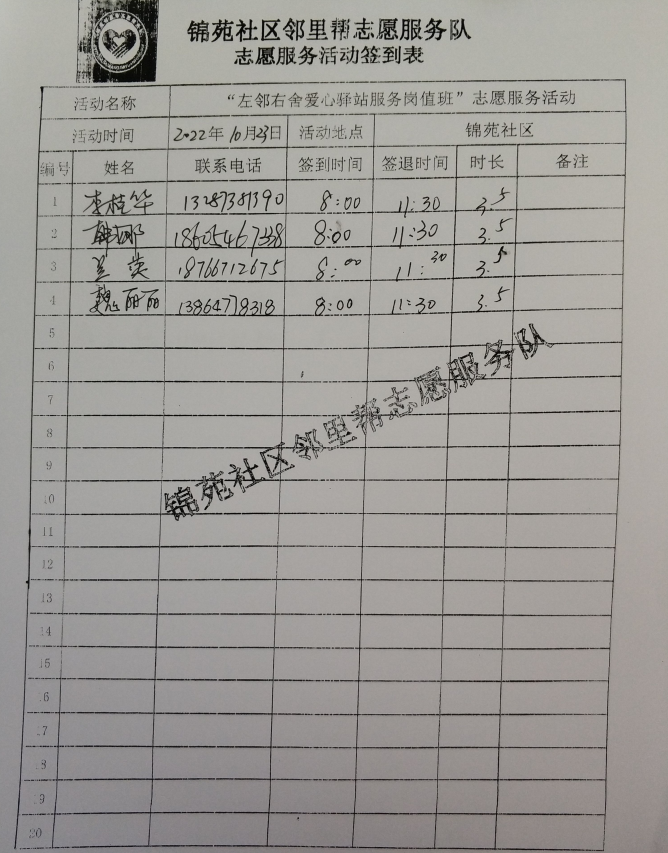 锦苑社区邻里帮志愿服务队
志愿服务活动签到表
活动名称 “左邻右舍爱心驿站服务岗值班”志愿服务活动
活动时间 2022年10月23日 活动地点 锦苑社区
编号 姓名 联系电话 签到时间 签退时间 时长 备注
1 李桂华 13287381390 8:00 11:30 3.5
2 韩娜 18605467338 8:00 11:30 3.5
3 兰英 18766712675 8:00 11:30 3.5
4 魏丽丽 13864778318 8:00 11:30 3.5
5
6
7
8
9
10
11
12
13
14
15
16
17
18
19
20
锦苑社区邻里帮志愿服务队